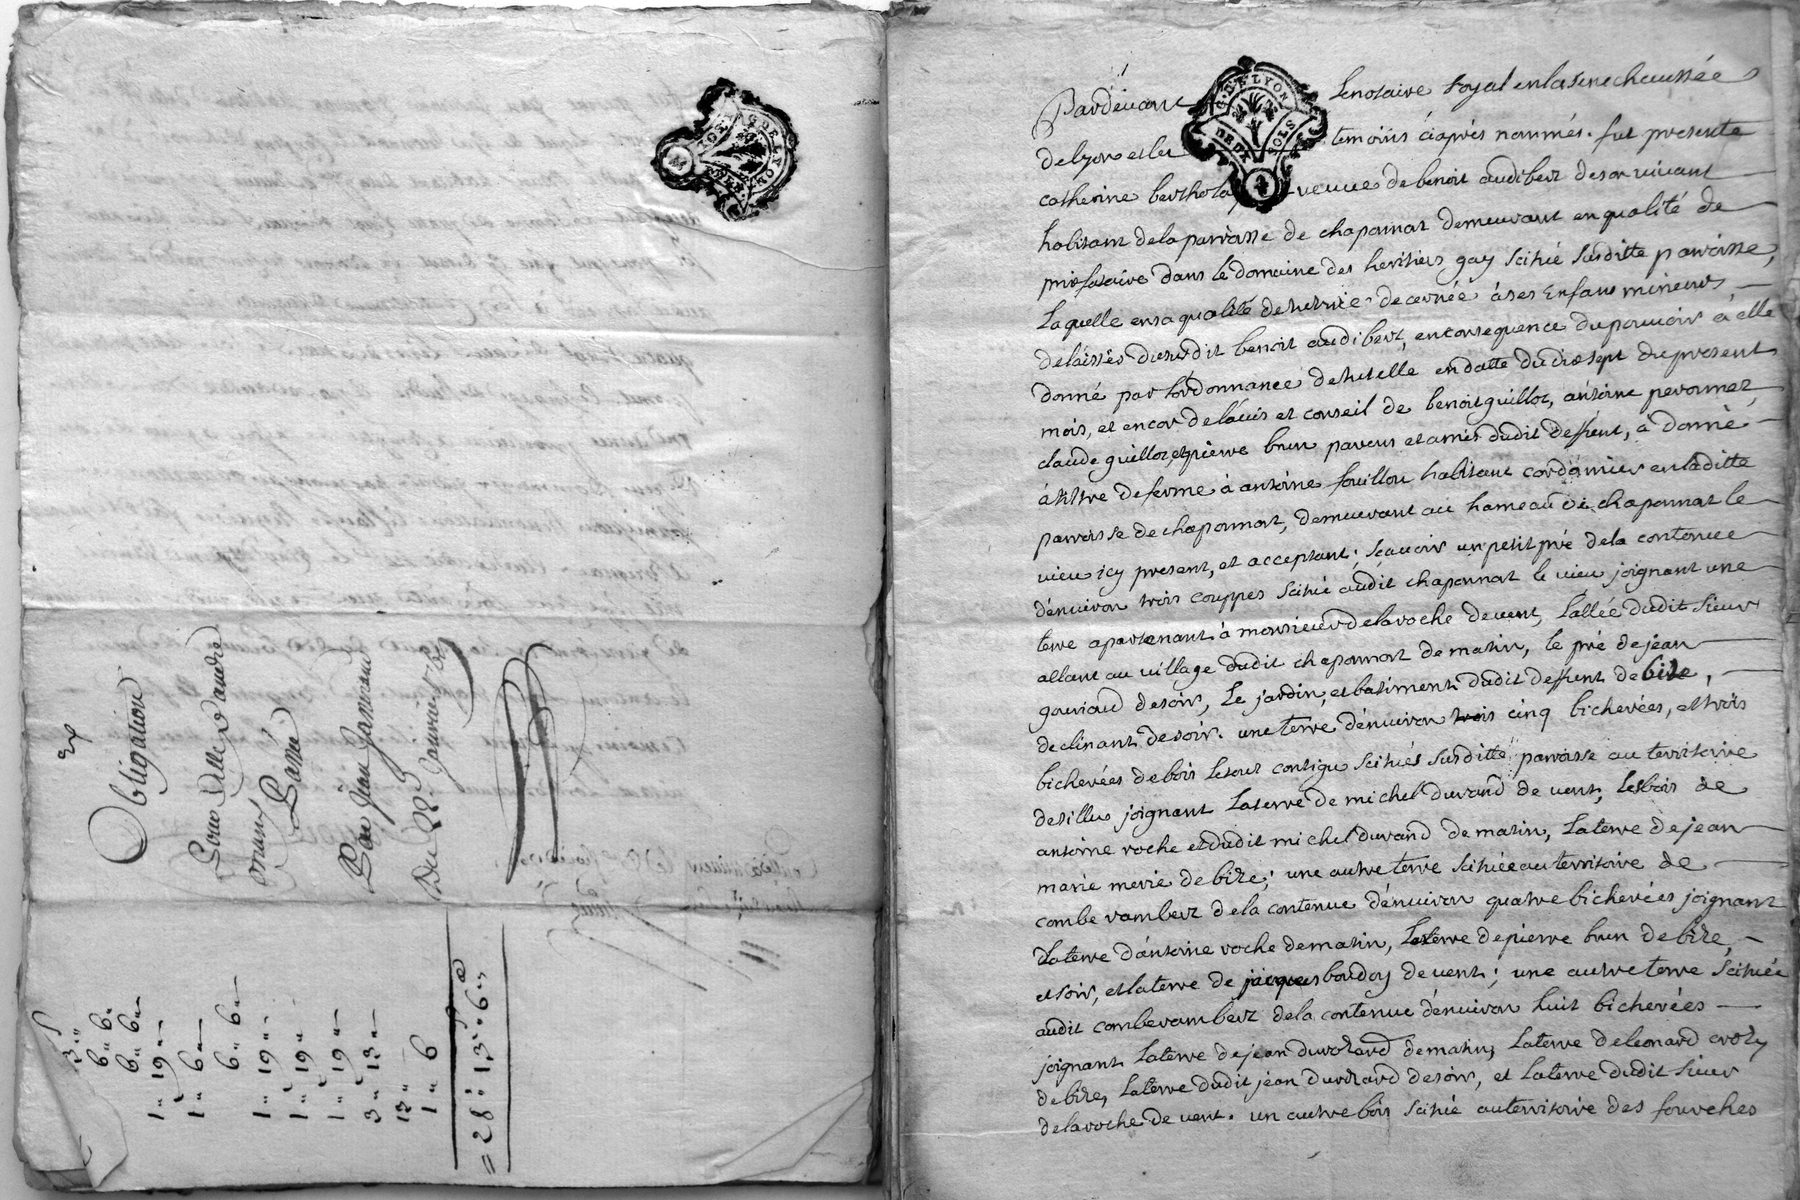 Obligation
Pour
Passée
Par Jean
Du 22e Janvier
3"
6" 6"
6" 6"
1" 19"
1" 6
6" 6"
1" 19"
1" 19"
1" 19"
3" 13"
13"
1" 6
= 28" 13" 6
G. DE LYON
DEUX SOLS
4
Pardevant Le notaire Royal en la senechaussée
de lyon et les temoins ciaprès nommés. fut presente
catherine veuve de benoit audibert de son vivant
habitant de la parroisse de chaponnat demeurant en qualité de
dans le domaine des heritiers gay scitué susditte parroisse,
Laquelle en sa qualité de tutrice decernée à ses Enfans mineurs
delaissés du susdit benoit audibert, en consequence du pouvoir à elle
donné par lordonnance de tutelle en datte du dix sept du present
mois, et encor de l'avis et conseil de benoit guillot, antoine peronnet,
claude guillot, et pierre brun parens et amis dudit deffunt, à donné
à tiltre de ferme à antoine fouillou habitant cordonnier en laditte
parroisse de chaponnat, demeurant au hameau de chaponnat le
vieu icy present, et acceptant; scavoir un petit pré de la contenue
d'environ trois couppes scitué audit chaponnat le vieu joignant une
terre apartenant à monsieur delaroche de vent, l'allée dudit sieur
allant au village dudit chaponnat de matin, le pré de jean
gouviaud de soir, Le jardin, et batiments dudit deffunt de bize,
declinant de soir. une terre d'environ trois cinq bicherées, et trois
bicherées de bois le tout contigu scitués susditte parroisse au territoire
de joignant La terre de michel durand de vent, Les bois de
antoine roche et dudit michel durand de matin, La terre de jean
marie merie de bize; une autre terre scituée au territoire de
combe rambert de la contenue d'environ quatre bicherées joignant
La terre d'antoine roche de matin, La terre de pierre brun de bize,
et soir, et la terre de jacques bondoy de vent; une autre terre scituée
audit comberambert de la contenue d'environ huit bicherées
joignant La terre de jean de matin, La terre de leonard
de bize, La terre dudit jean de soir, et La terre dudit sieur
delaroche de vent. un autre bois scitué au territoire des fourches